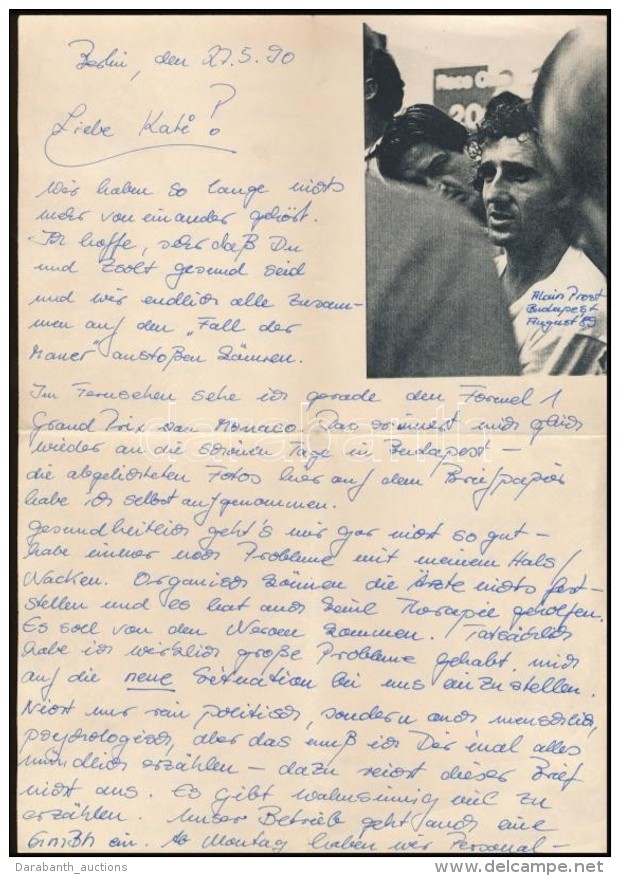 Berlin, den 27.5.90
Liebe Kati!
Wir haben so lange nichts
mehr voneinander gehört.
Ich hoffe, sehr daß Du
und Zsolt gesund seid
und wir endlich alle zusam-
men auf den „Fall der
Mauer" anstoßen können.
Race
20
Alain Prost
Budapest
August '89
Im Fernsehen sehe ich gerade den Formel 1
Grand Prix von Monaco. Das erinnert mich gleich
wieder an die schönen Tage in Budapest –
die abgelichteten Fotos hier auf dem Briefpapier
habe ich selbst aufgenommen.
gesundheitlich geht's mir gar nicht so gut –
habe immer noch Probleme mit meinem Hals/
Nacken. Organisch können die Ärzte nichts fest-
stellen und es hat auch keine Therapie geholfen.
Es soll von den Nerven kommen. Tatsächlich
habe ich wirklich große Probleme gehabt mich
auf die neue Situation bei uns einzustellen.
Nicht nur rein politisch, sondern auch menschlich,
psychologisch, aber das muß ich Dir mal alles
mündlich erzählen – dazu reicht dieser Brief
nicht aus. Es gibt wahnsinnig viel zu
erzählen. Unser Betrieb geht auch eine
GmbH ein. Ab Montag haben wir Personal–
databanth
Darabanth_auctions